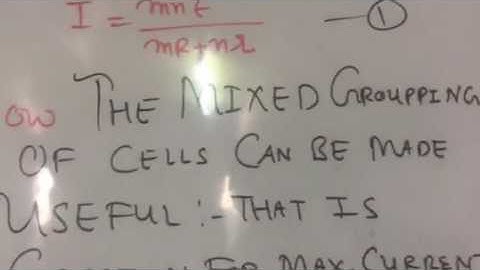 I = mnE / mR+nr —①
ow THE MIXED GROUPPING
OF CELLS CAN BE MADE
USEFUL :- THAT IS
FOR MAX. CURRENT